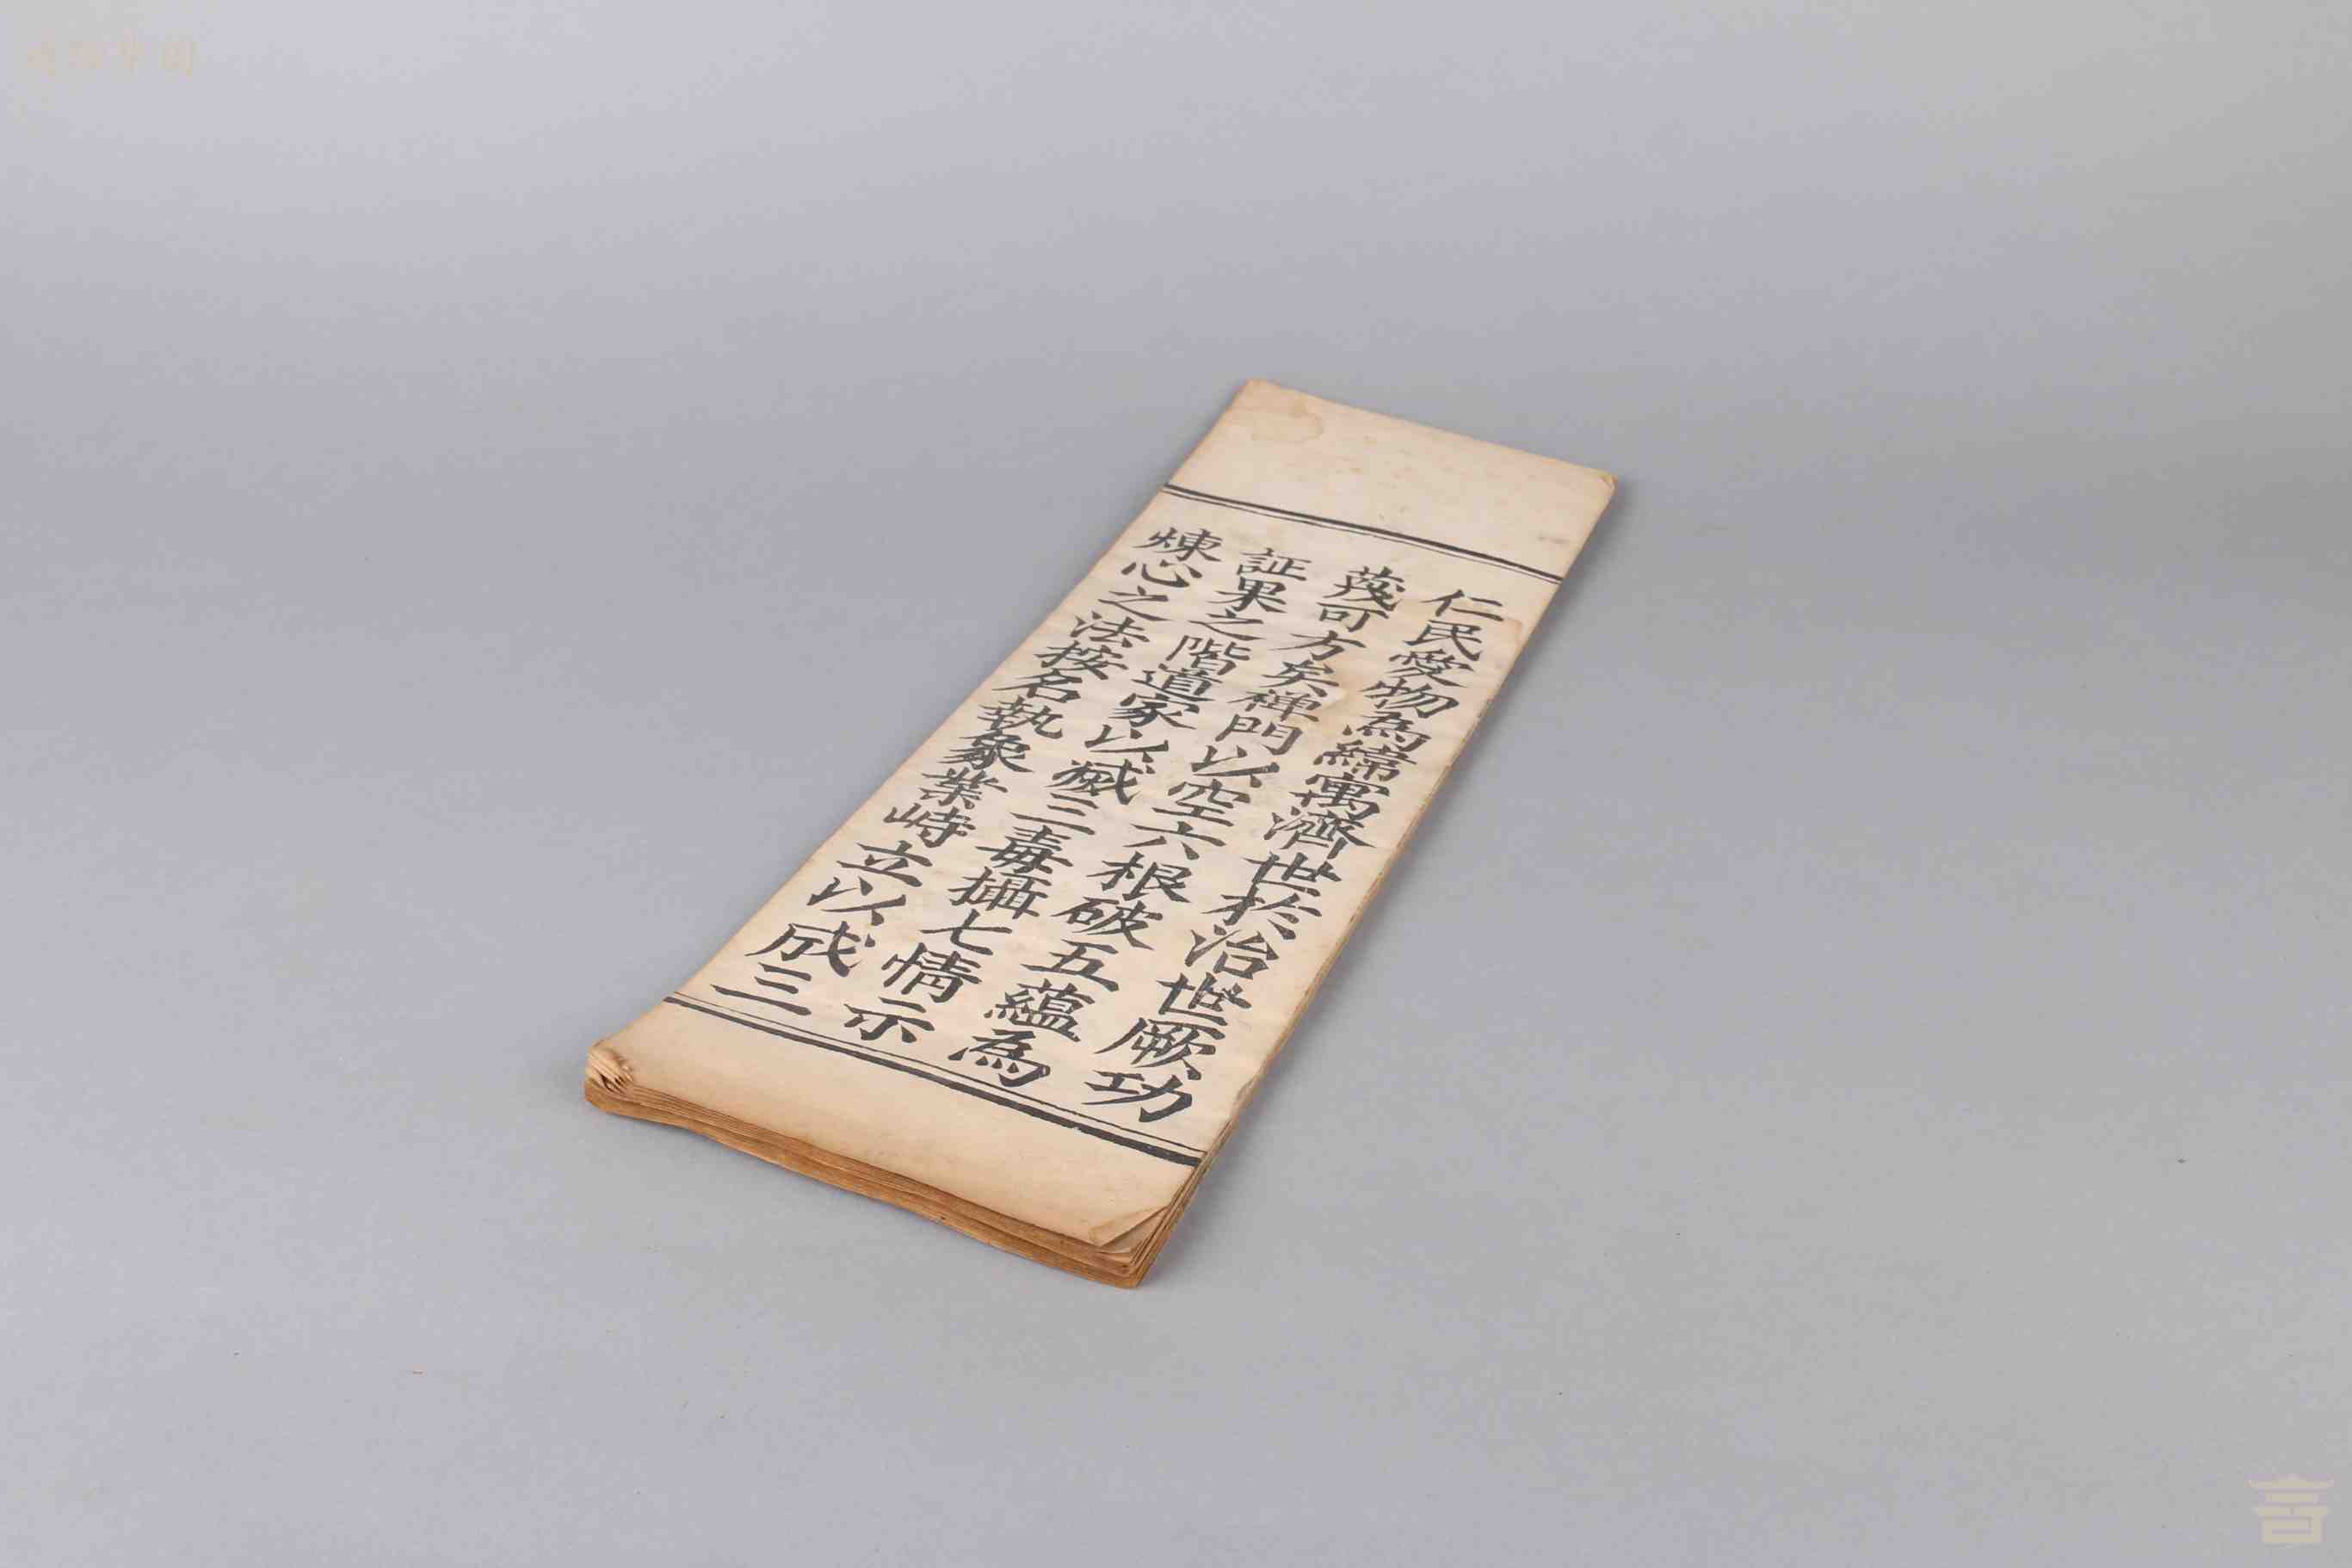 仁民愛物為締寓濟世於治世厥功
蔑可方矣禅門以空六根破五蘊為
証果之階道家以滅三毒攝七情示
煉心之法按名執象業峙立以成三